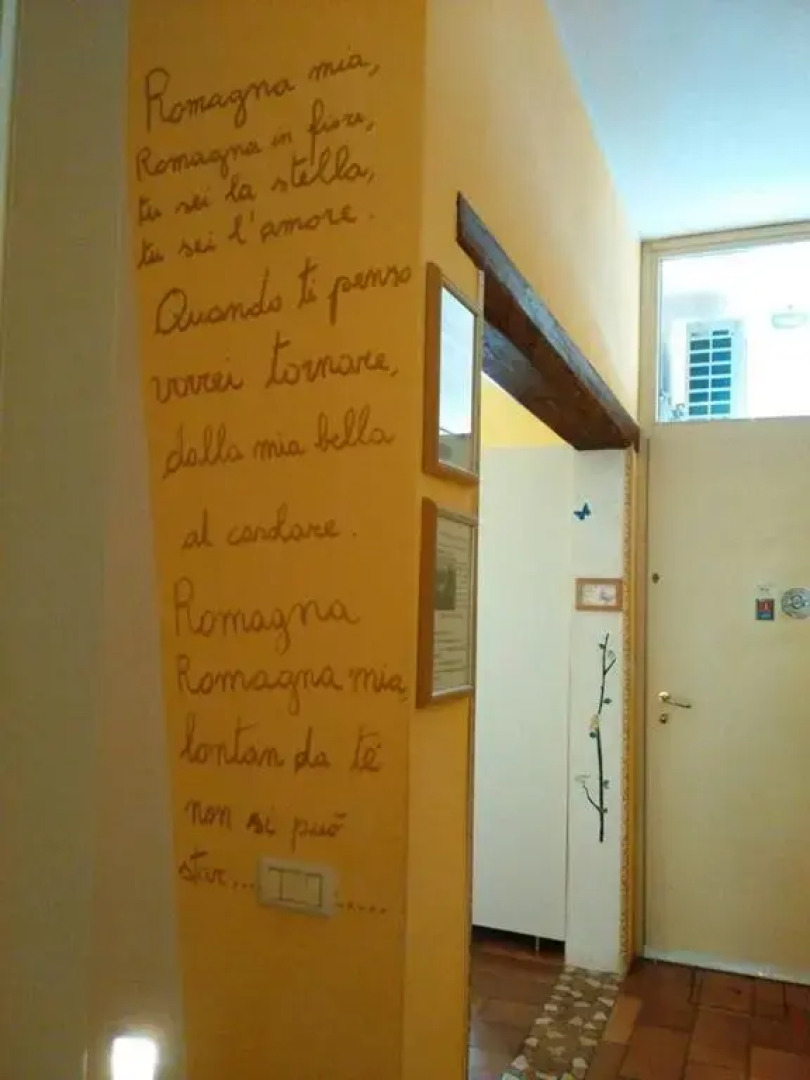 Romagna mia,
Romagna in fiore,
tu sei la stella,
tu sei l'amore.
Quando ti penso
vorrei tornare,
dalla mia bella
al casolare.
Romagna
Romagna mia,
lontan da te
non si può
star... .....